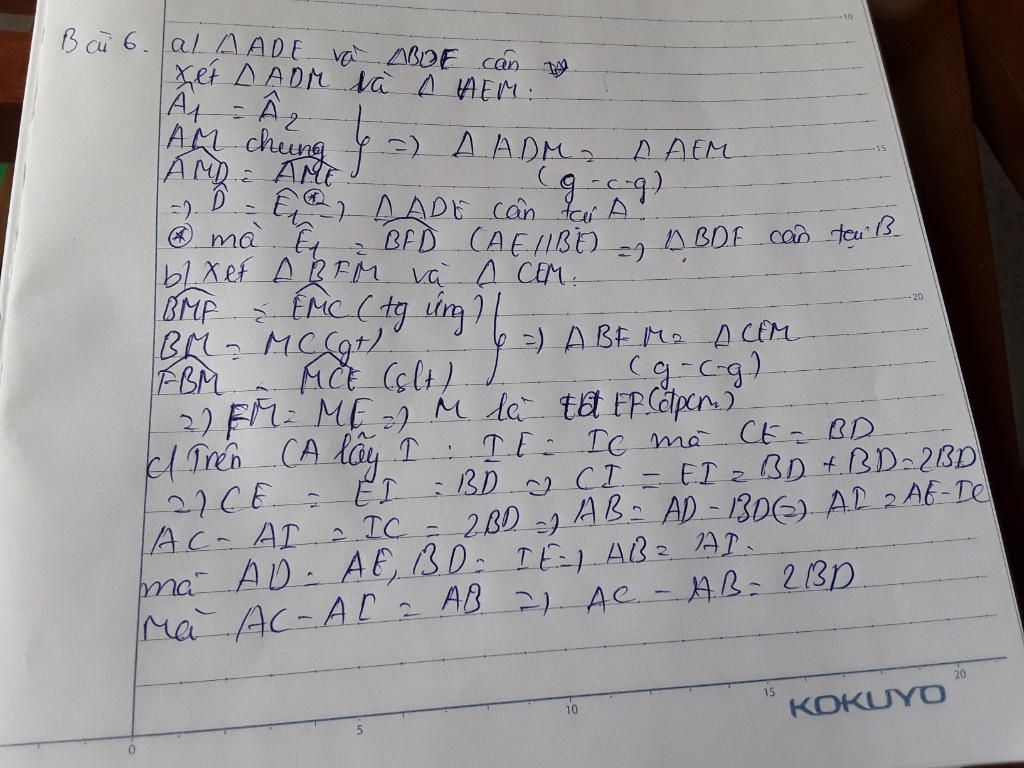 Bài 6. a) ΔADE và ΔBDF cân
Xét ΔADM và ΔAEM:
Â1 = Â2
AM chung } => ΔADM = ΔAEM
AMD = AME (g-c-g)
=> D̂ = Ê1 (*) => ΔADE cân tại A.
(*) mà Ê1 = BFD (AE//BF) => ΔBDF cân tại B
b) Xét ΔBFM và ΔCEM:
BMF = EMC (tg ứng)
BM = MC (gt) } => ΔBFM = ΔCEM
FBM = MCE (slt) (g-c-g)
=> FM = ME => M là EF (đpcm)
c) Trên CA lấy I : IE = IC mà CE = BD
=> CE = EI = BD => CI = EI = BD + BD = 2BD
AC - AI = IC = 2BD => AB = AD - BD (=) AI = AE - IC
mà AD = AE, BD = IE => AB = AI.
Mà AC - AI = AB => AC - AB = 2BD
10
15
20
0
5
10
15
20
KOKUYO